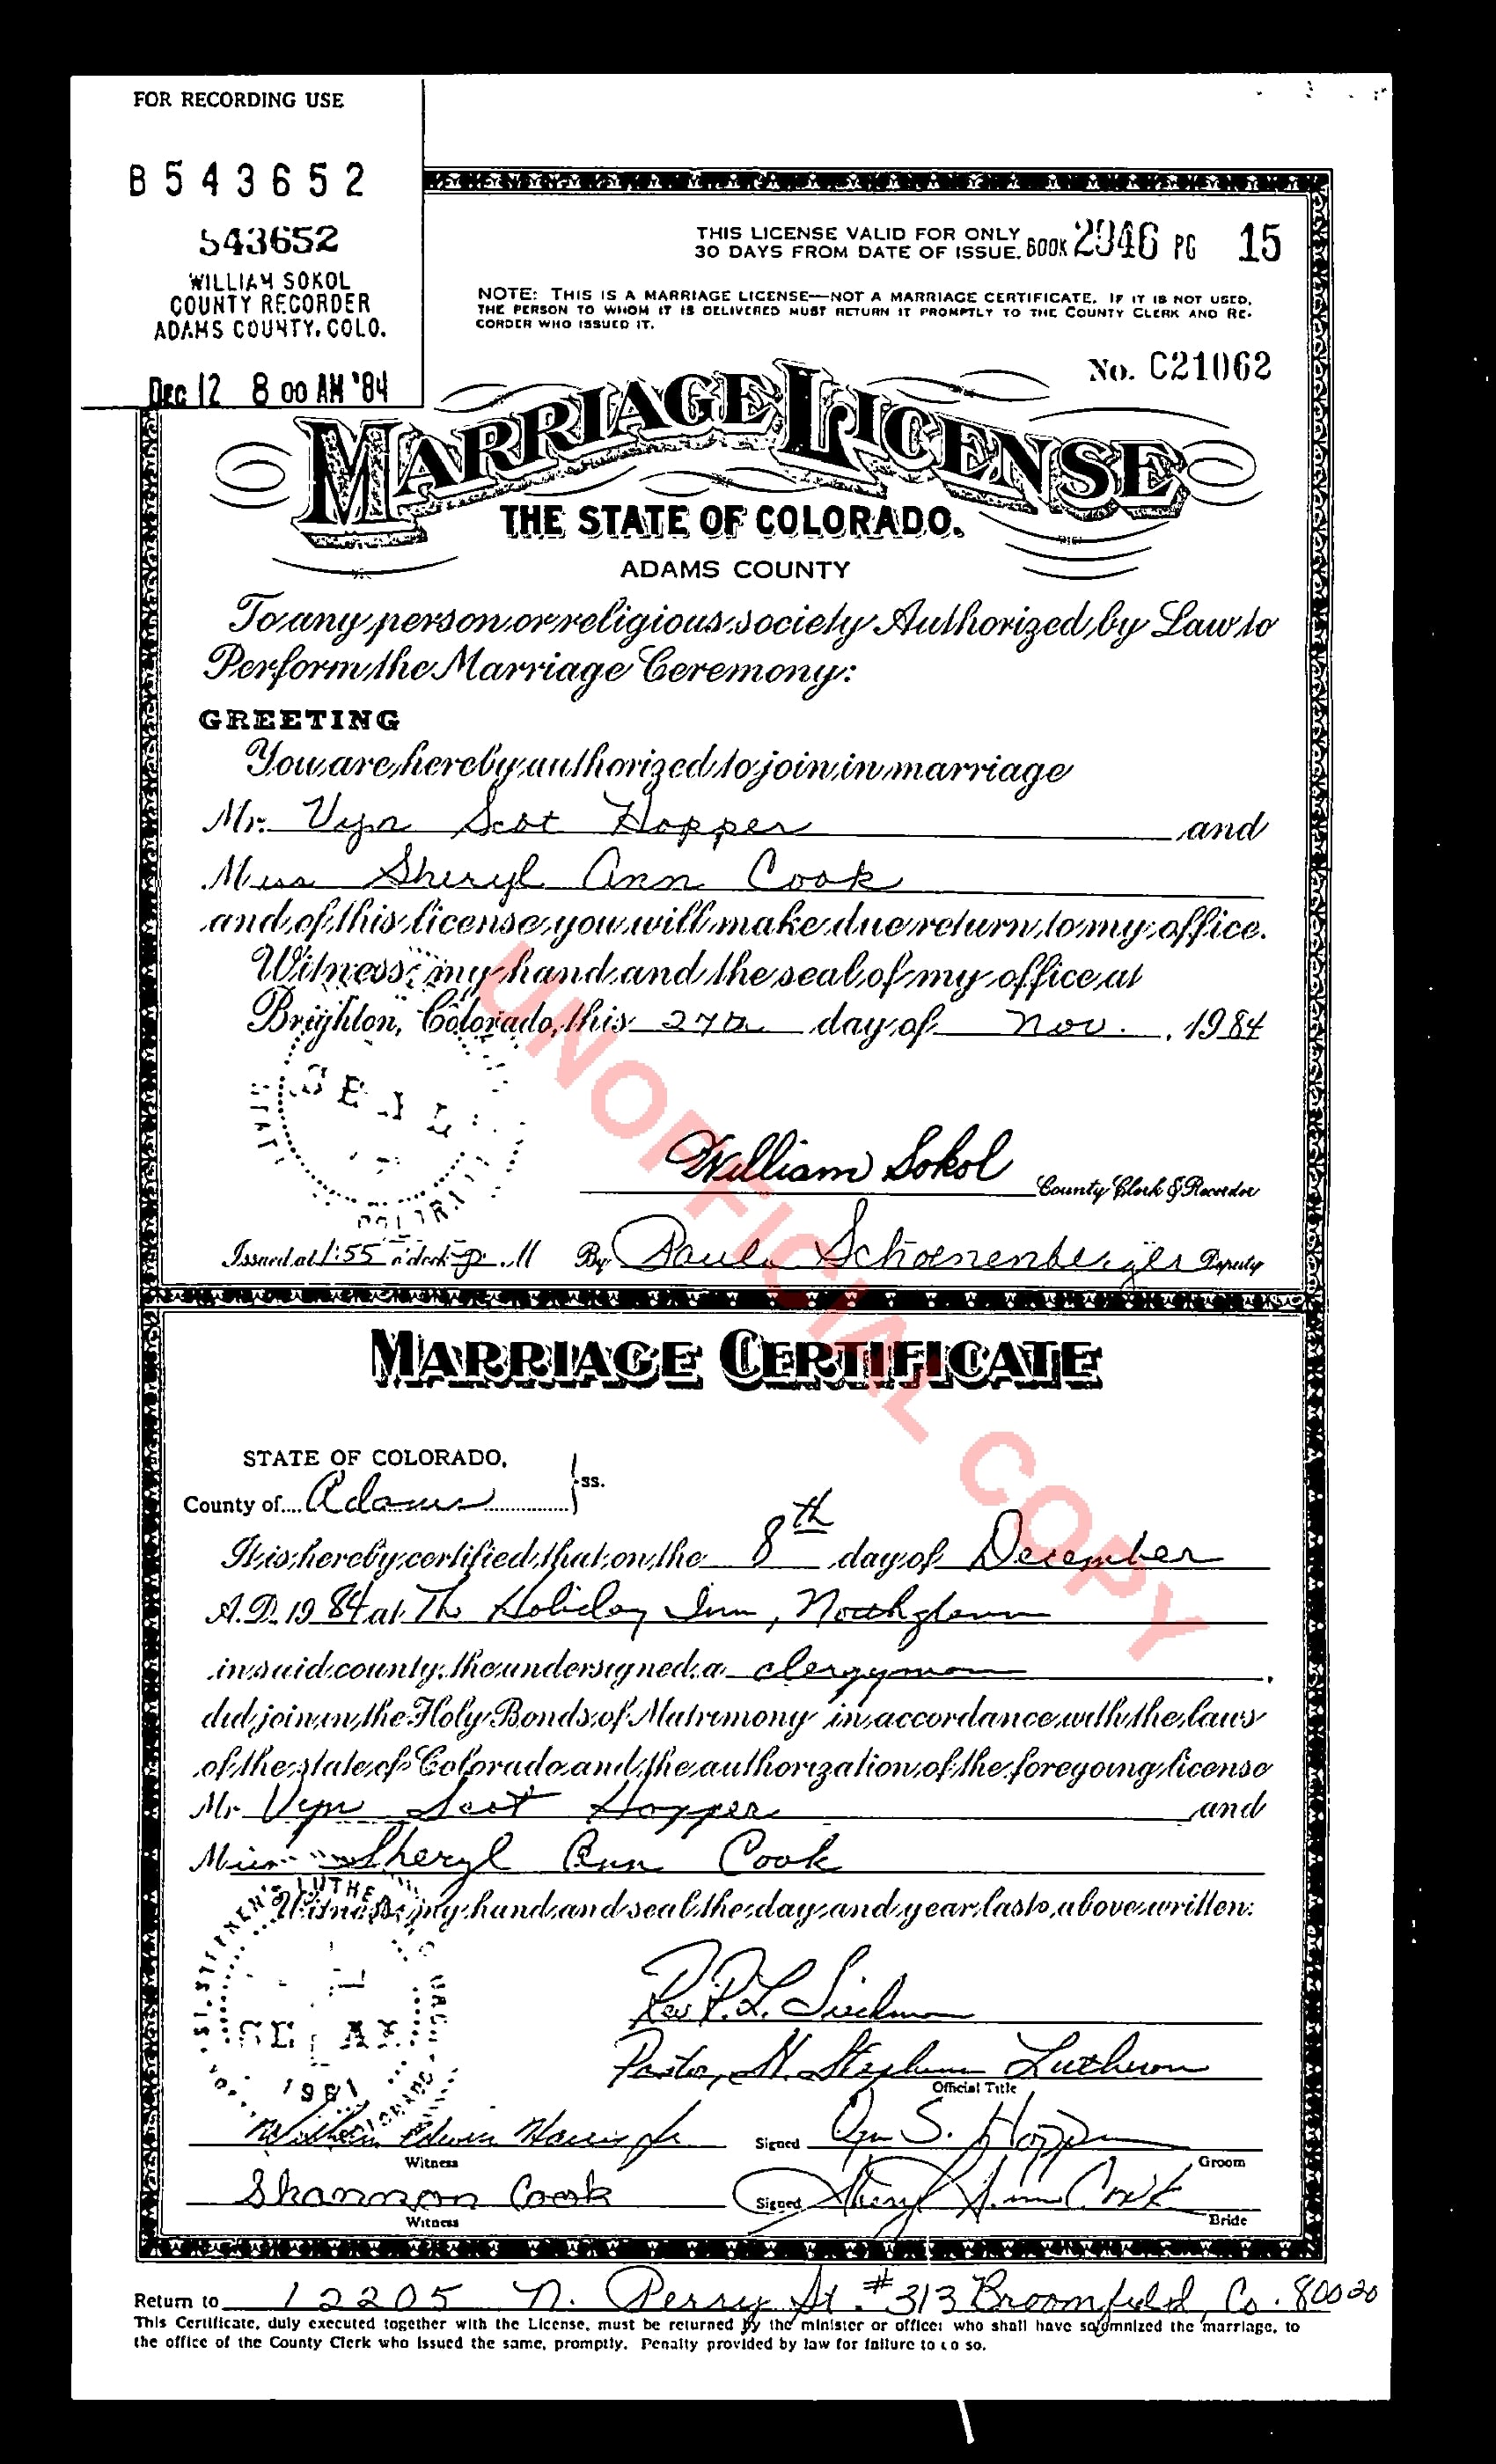 FOR RECORDING USE
B543652
543652
WILLIAM SOKOL
COUNTY RECORDER
ADAMS COUNTY, COLO.
DEC 12 8 00 AM '84
THIS LICENSE VALID FOR ONLY
30 DAYS FROM DATE OF ISSUE. BOOK 2946 PG 15
NOTE: THIS IS A MARRIAGE LICENSE—NOT A MARRIAGE CERTIFICATE. IF IT IS NOT USED,
THE PERSON TO WHOM IT IS DELIVERED MUST RETURN IT PROMPTLY TO THE COUNTY CLERK AND RE-
CORDER WHO ISSUED IT.
No. C21062
MARRIAGE LICENSE
THE STATE OF COLORADO.
ADAMS COUNTY
To any person or religious society Authorized by Law to
Perform the Marriage Ceremony:
GREETING
You are hereby authorized to join in marriage
Mr. Vyn Scot Hopper and
Miss Sheryl Ann Cook
and of this license you will make due return to my office.
Witness my hand and the seal of my office at
Brighton, Colorado, this 27th day of Nov., 1984
SEAL
William Sokol County Clerk & Recorder
Issued at 1:55 o'clock p. M By Paula Schoenenberger Deputy
MARRIAGE CERTIFICATE
STATE OF COLORADO,
County of Adams ss.
It is hereby certified that on the 8th day of December
A.D. 1984 at The Holiday Inn, Northglenn
in said county, the undersigned, a clergyman,
did join in the Holy Bonds of Matrimony in accordance with the laws
of the state of Colorado and the authorization of the foregoing license
Mr Vyn Scot Hopper and
Miss Sheryl Ann Cook
Witness my hand and seal the day and year last above written:
ST. STEPHEN'S LUTHERAN CHURCH
SEAL
1961
COLORADO
Rev P. L.
Pastor, St. Stephens Lutheran
Official Title
William Edwin Harris Jr Signed Vyn S. Hopper
Witness Groom
Shannon Cook Signed Sheryl Ann Cook
Witness Bride
Return to 12205 N. Perry St. #313 Broomfield, Co. 80020
This Certificate, duly executed together with the License, must be returned by the minister or officer who shall have solemnized the marriage, to
the office of the County Clerk who issued the same, promptly. Penalty provided by law for failure to do so.
UNOFFICIAL COPY